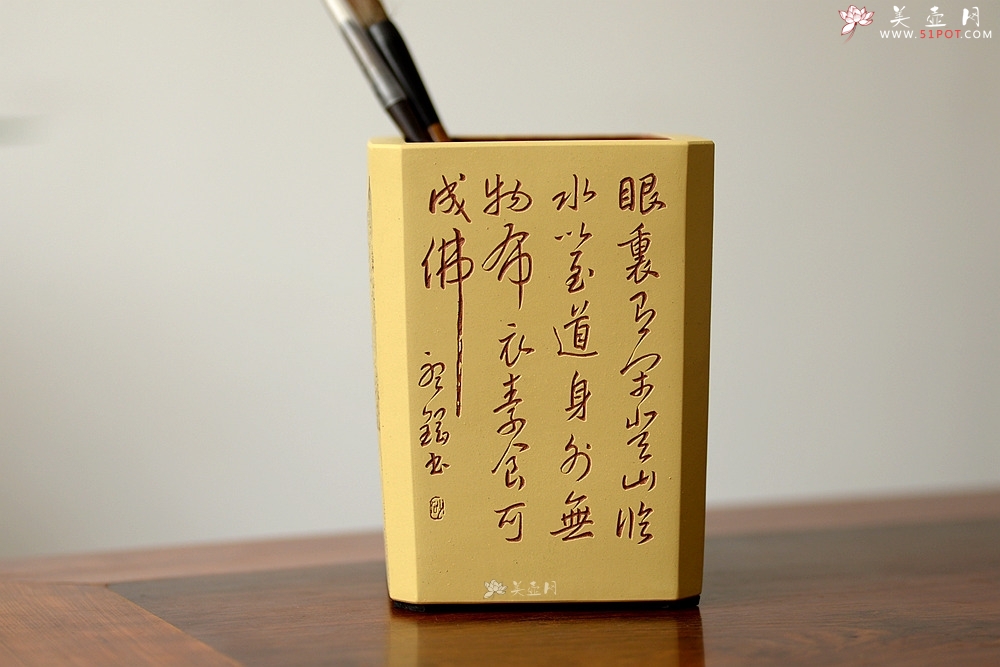 美壶网
WWW.51POT.COM
眼裏有登山臨
水以至道身外無
物布衣素食可
成佛
書
美壶网